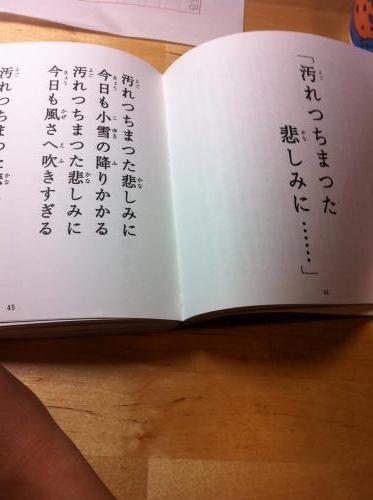 「汚れつちまつた
悲しみに……」
44
汚れつちまつた悲しみに
今日も小雪の降りかかる
汚れつちまつた悲しみに
今日も風さへ吹きすぎる
汚れつちまつた悲
45